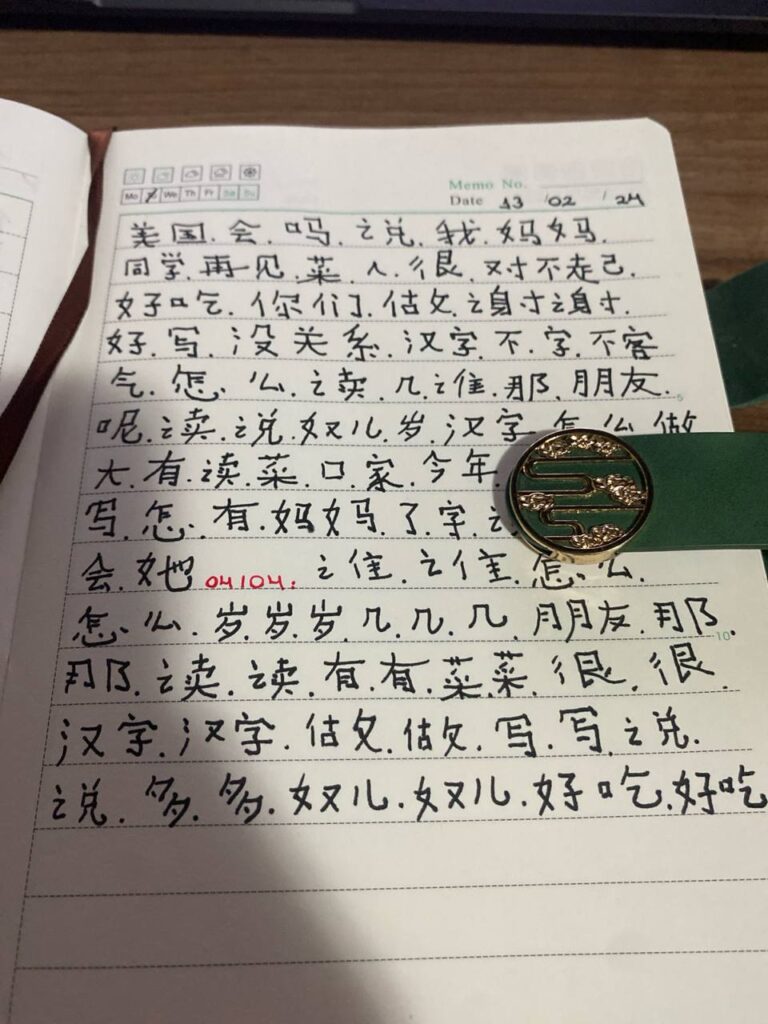 Memo No.
Mo Tu We Th Fr Sa Su
Date 13 /02 /24
美国.会.吗.说.我.妈妈.
同学.再见.菜.人.很.对不起.
好吃.你们.做.谢谢.
好.写.没关系.汉字.不.字.不客
气.怎么.读.几.谁.那.朋友.
呢.读.说.女儿.岁.汉字.怎么做
大.有.读.菜.口.家.今年.
写.怎.有.妈妈.了.字.
会.她 04/04. 谁.谁.怎么.
怎么.岁.岁.岁.几.几.几.朋友.那.
那.读.读.有.有.菜.菜.很.很.
汉字.汉字.做.做.写.写.说.
说.多.多.女儿.女儿.好吃.好吃
5
10